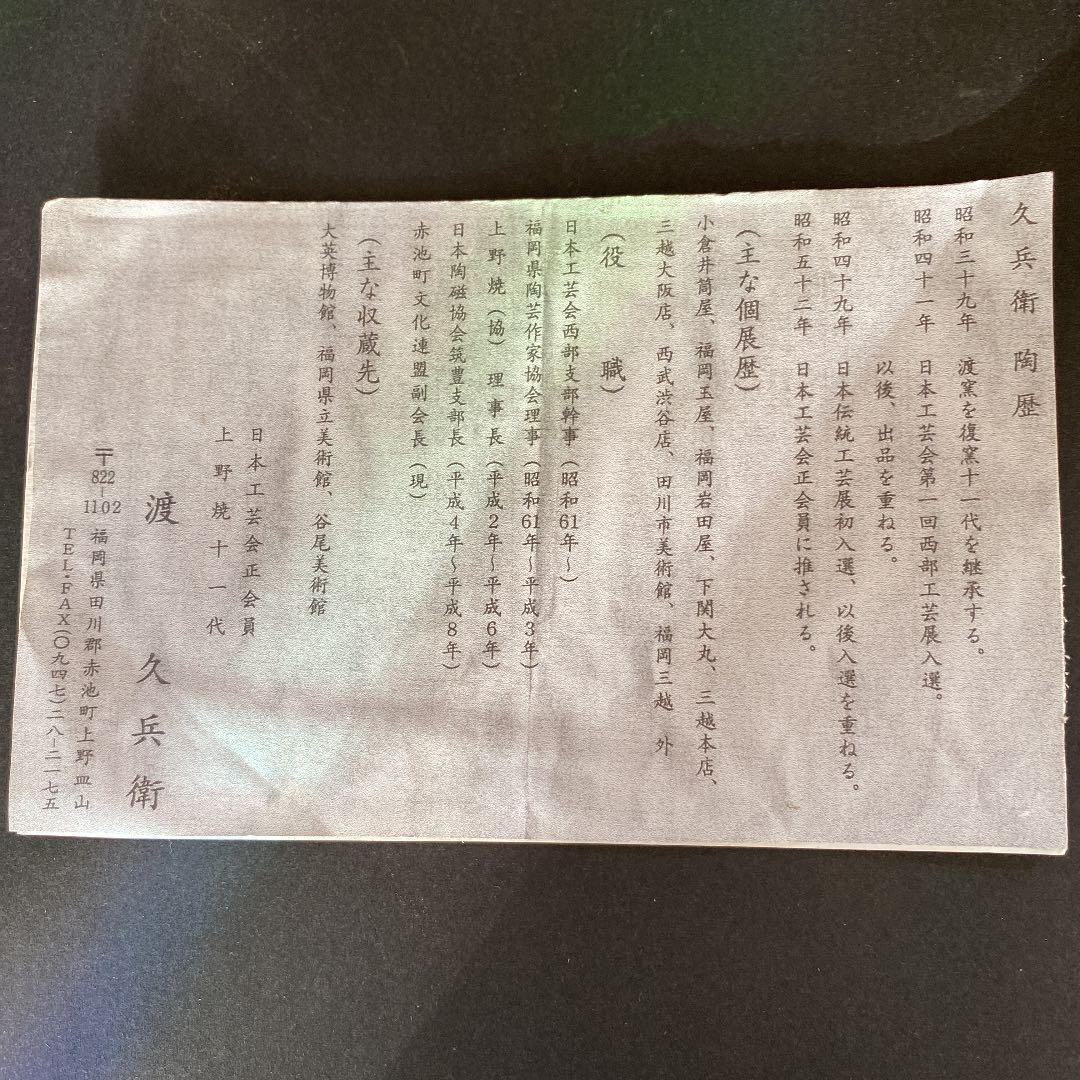 久兵衛陶歴
昭和三十九年　渡窯を復窯十一代を継承する。
昭和四十一年　日本工芸会第一回西部工芸展入選。
以後、出品を重ねる。
昭和四十九年　日本伝統工芸展初入選、以後入選を重ねる。
昭和五十二年　日本工芸会正会員に推される。
（主な個展歴）
小倉井筒屋、福岡玉屋、福岡岩田屋、下関大丸、三越本店、
三越大阪店、西武渋谷店、田川市美術館、福岡三越　外
（役　職）
日本工芸会西部支部幹事（昭和61年～）
福岡県陶芸作家協会理事（昭和61年～平成3年）
上野焼（協）理事長（平成2年～平成6年）
日本陶磁協会筑豊支部長（平成4年～平成8年）
赤池町文化連盟副会長（現）
（主な収蔵先）
大英博物館、福岡県立美術館、谷尾美術館
日本工芸会正会員
上野焼十一代
渡　久兵衛
〒822-1102　福岡県田川郡赤池町上野皿山
TEL・FAX（〇九四七）二八－二一七五